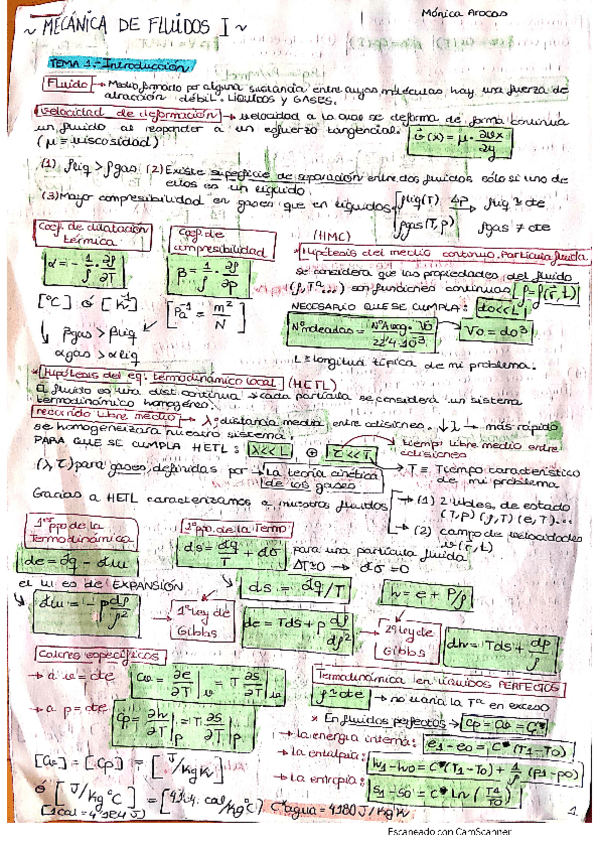 Mónica Arocas
~ MECÁNICA DE FLUIDOS I ~
TEMA 1.- Introducción
Fluido → Medio formado por alguna sustancia entre cuyas moléculas hay una fuerza de
atracción débil. LÍQUIDOS Y GASES.
velocidad de deformación → velocidad a la cual se deforma de forma continua
un fluido al responder a un esfuerzo tangencial. G(x) = μ · ∂vx/∂y
(μ = viscosidad)
(1) ρliq > ρgas (2) Existe superficie de separación entre dos fluidos sólo si uno de
ellos es un líquido.
(3) Mayor compresibilidad en gases que en líquidos ρliq(T) Δp ρliq ≅ cte
ρgas(T, p) ρgas ≠ cte
Coef. de dilatación térmica
Coef. de compresibilidad
(HMC)
Hipótesis del medio continuo. Partícula fluida
α = - 1/ρ · ∂ρ/∂T
β = 1/ρ · ∂ρ/∂p
se considera que las propiedades del fluido
(ρ, Tª ...) son funciones continuas ρ = ρ(r, t)
[ºC] ó [K⁻¹]
[Pa⁻¹ = m²/N]
NECESARIO QUE SE CUMPLA: do << L
βgas > βliq
αgas > αliq
Nºmoléculas = NºAvog · Vo / 22'4·10³
Vo = do³
L = longitud típica de mi problema.
* Hipótesis del eq. termodinámico local (HETL)
El fluido es una dist. continua → cada partícula se considera un sistema
termodinámico homogéneo.
recorrido libre medio → λ = distancia media entre colisiones. ↓λ → más rápido
se homogeneizará nuestro sistema.
PARA QUE SE CUMPLA HETL: λ << L ⊕ τ << T
tiempo libre medio entre colisiones
(λ, τ) para gases, definidas por → La teoría cinética de los gases
T ≡ Tiempo característico de mi problema
Gracias a HETL caracterizamos a nuestros fluidos
(1) 2 vbles. de estado
(T, p) (ρ, T) (e, T)...
(2) campo de velocidades
v(r, t)
1er ppo de la Termodinámica
1º ppo. de la Termo
de = dq - dw
ds = dq/T + dσ
para una partícula fluida
ΔT≅0 → dσ = 0
el w es de EXPANSIÓN
ds = dq/T
h = e + P/ρ
dw = - p dρ/ρ²
1ª ley de Gibbs
de = Tds + p dρ/ρ²
2ª ley de Gibbs
dh = Tds + dp/ρ
Calores específicos
→ a v = cte Cv = ∂e/∂T |v = T ∂s/∂T |v
Termodinámica en LÍQUIDOS PERFECTOS
ρ ≅ cte → no varía la Tª en exceso
→ a p = cte Cp = ∂h/∂T |p = T ∂s/∂T |p
* En fluidos perfectos → Cp = Cv = C*
→ la energía interna: e1 - e0 = C* (T1 - T0)
[Cv] = [Cp] = [J/kg K]
→ la entalpía: h1 - h0 = C* (T1 - T0) + 1/ρ (p1 - p0)
→ la entropía: s1 - s0 = C* Ln (T1/T0)
ó [J/kg ºC] = [4'184 cal/kg ºC] C*agua = 4180 J/kg K
(1 cal = 4'184 J)
1.
Escaneado con CamScanner